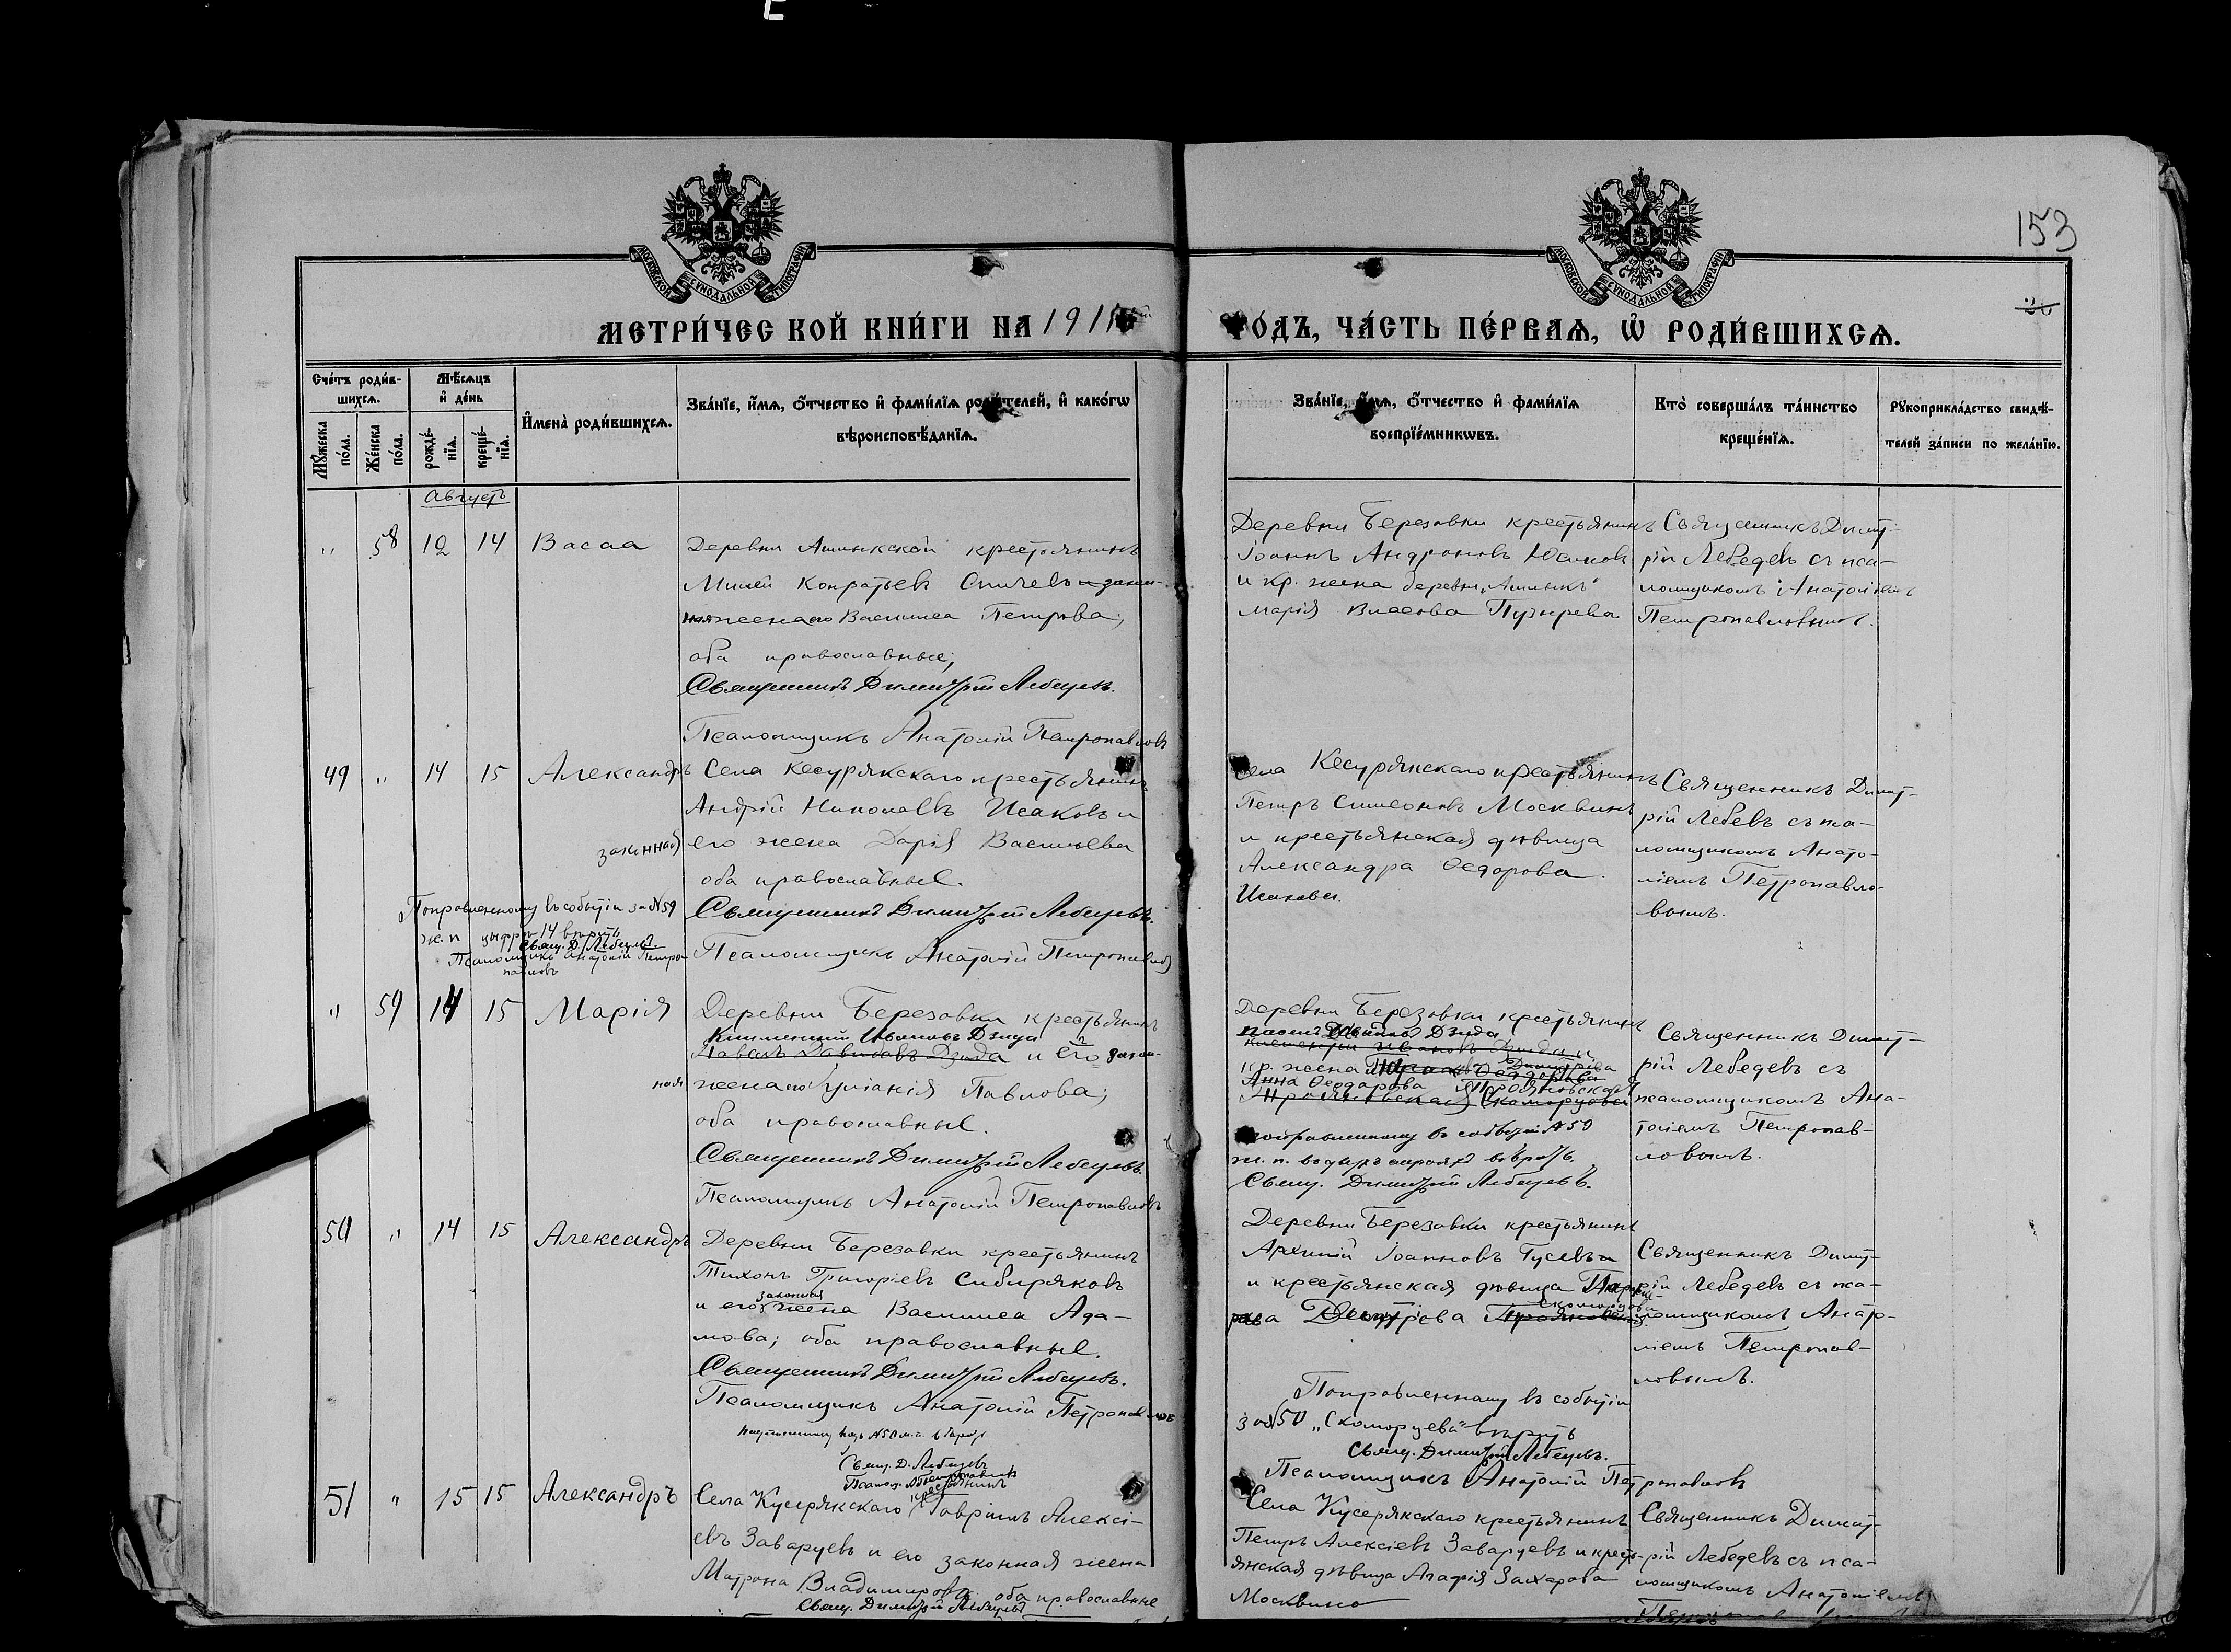 153
20
МОСКОВСКОЙ СУНОДАЛЬНОЙ ТИПОГРАФIИ
МОСКОВСКОЙ СУНОДАЛЬНОЙ ТИПОГРАФIИ
МЕТРИ́ЧЕСКОЙ КНИ́ГИ НА 1911
ГО́ДЪ, ЧА́СТЬ ПЕ́РВАѦ, Ѿ РОДИ́ВШИХСѦ.
Сче́тъ роди́в-
шихсѧ.
Мꙋ́жеска по́ла.
Же́нска по́ла.
Мѣ́сѧцъ
и҆ де́нь
рожде́нїѧ.
креще́нїѧ.
И҆мена̀ роди́вшихсѧ.
Зва́нїе, и҆́мѧ, о҆́тчество и҆ фами́лїѧ роди́телей, и҆ како́гѡ
вѣроисповѣ́данїѧ.
Зва́нїе, и҆́мѧ, о҆́тчество и҆ фами́лїѧ
воспрїе́мникѡвъ.
Кто̀ соверша́лъ та́инство
креще́нїѧ.
Рꙋкоприкла́дство свидѣ́-
телей за́писи по жела́нїю.
Августъ
" 58 12 14 Васса
Деревни крестьянинъ
Миней Конратьевъ и закон-
ная жена его Василиса Петрова;
оба православные;
Священникъ Димитрій Лебедевъ.
Псаломщикъ Анатолій Петропавловъ
Деревни Березовки крестьянинъ
Іоаннъ Андроновъ
и кр. жена деревни
Марія Власова Пузырева.
Священникъ Димит-
рій Лебедевъ съ пса-
ломщикомъ Анатоліемъ
Петропавловымъ.
49 " 14 15 Александръ
Села Кесурякскаго крестьянинъ
Андрій Николаевъ Исаковъ и
законная его жена Дарія Васильева
оба православные.
Священникъ Димитрій Лебедевъ.
Псаломщикъ Анатолій Петропавловъ
Села Кесурякскаго крестьянинъ
Петръ Симеоновъ Москвинъ
и крестьянская дѣвица
Александра Ѳедорова
Исакова.
Священникъ Димит-
рій Лебевъ съ пса-
ломщикомъ Анато-
ліемъ Петропавло-
вымъ.
Поправленному въ событіи за №59
ж. п. цыфръ 14 вѣрить
Свящ. Д. Лебедевъ
Псаломщикъ Анатолій Петро-
павловъ
" 59 14 15 Марія
Деревни Березовки крестьянинъ
Климентій Ивановъ Дзида
Павелъ Давидовъ Дзида и его закон-
ная жена Павлова;
оба православные.
Священникъ Димитрій Лебедевъ.
Псаломщикъ Анатолій Петропавловъ
Деревни Березовки крестьянинъ
Дзида
Климентій Ивановъ Дзида и
кр. жена
Анна Ѳеодорова
Скоморцова
поправленному въ событіи №59
ж. п. вѣрить.
Свящ. Димитрій Лебедевъ.
Священникъ Димит-
рій Лебедевъ съ
псаломщикомъ Ана-
толіемъ Петропав-
ловымъ.
50 " 14 15 Александръ
Деревни Березавки крестьянинъ
Тихонъ Григоріевъ Сибиряковъ
законная
и его жена Василиса Ада-
мова; оба православные.
Священникъ Димитрій Лебедевъ.
Псаломщикъ Анатолій Петропавловъ
Свящ. Д. Лебедевъ
Деревни Березавки крестьянинъ
Архипій Іоанновъ Гусевъ
и крестьянская дѣвица
Димитріева
Священникъ Димит-
рій Лебедевъ съ пса-
ломщикомъ Анато-
ліемъ Петропав-
ловымъ.
Поправленному въ событіи
за №50 „Скоморцева" вѣрить
Свящ. Димитрій Лебедевъ.
Псаломщикъ Анатолій Петропавловъ
51 " 15 15 Александръ
крестьянинъ
Села Кусерякскаго Гавріилъ Алексі-
евъ Заваруевъ и его законная жена
Матрона Владимирова оба православные
Свящ. Димитрій Лебедевъ
Села Кусерякскаго крестьянинъ
Петръ Алексіевъ Заваруевъ и кресть-
янская дѣвица Агафія Захарова
Москвина
Священникъ Димит-
рій Лебедевъ съ пса-
ломщикомъ Анатоліемъ